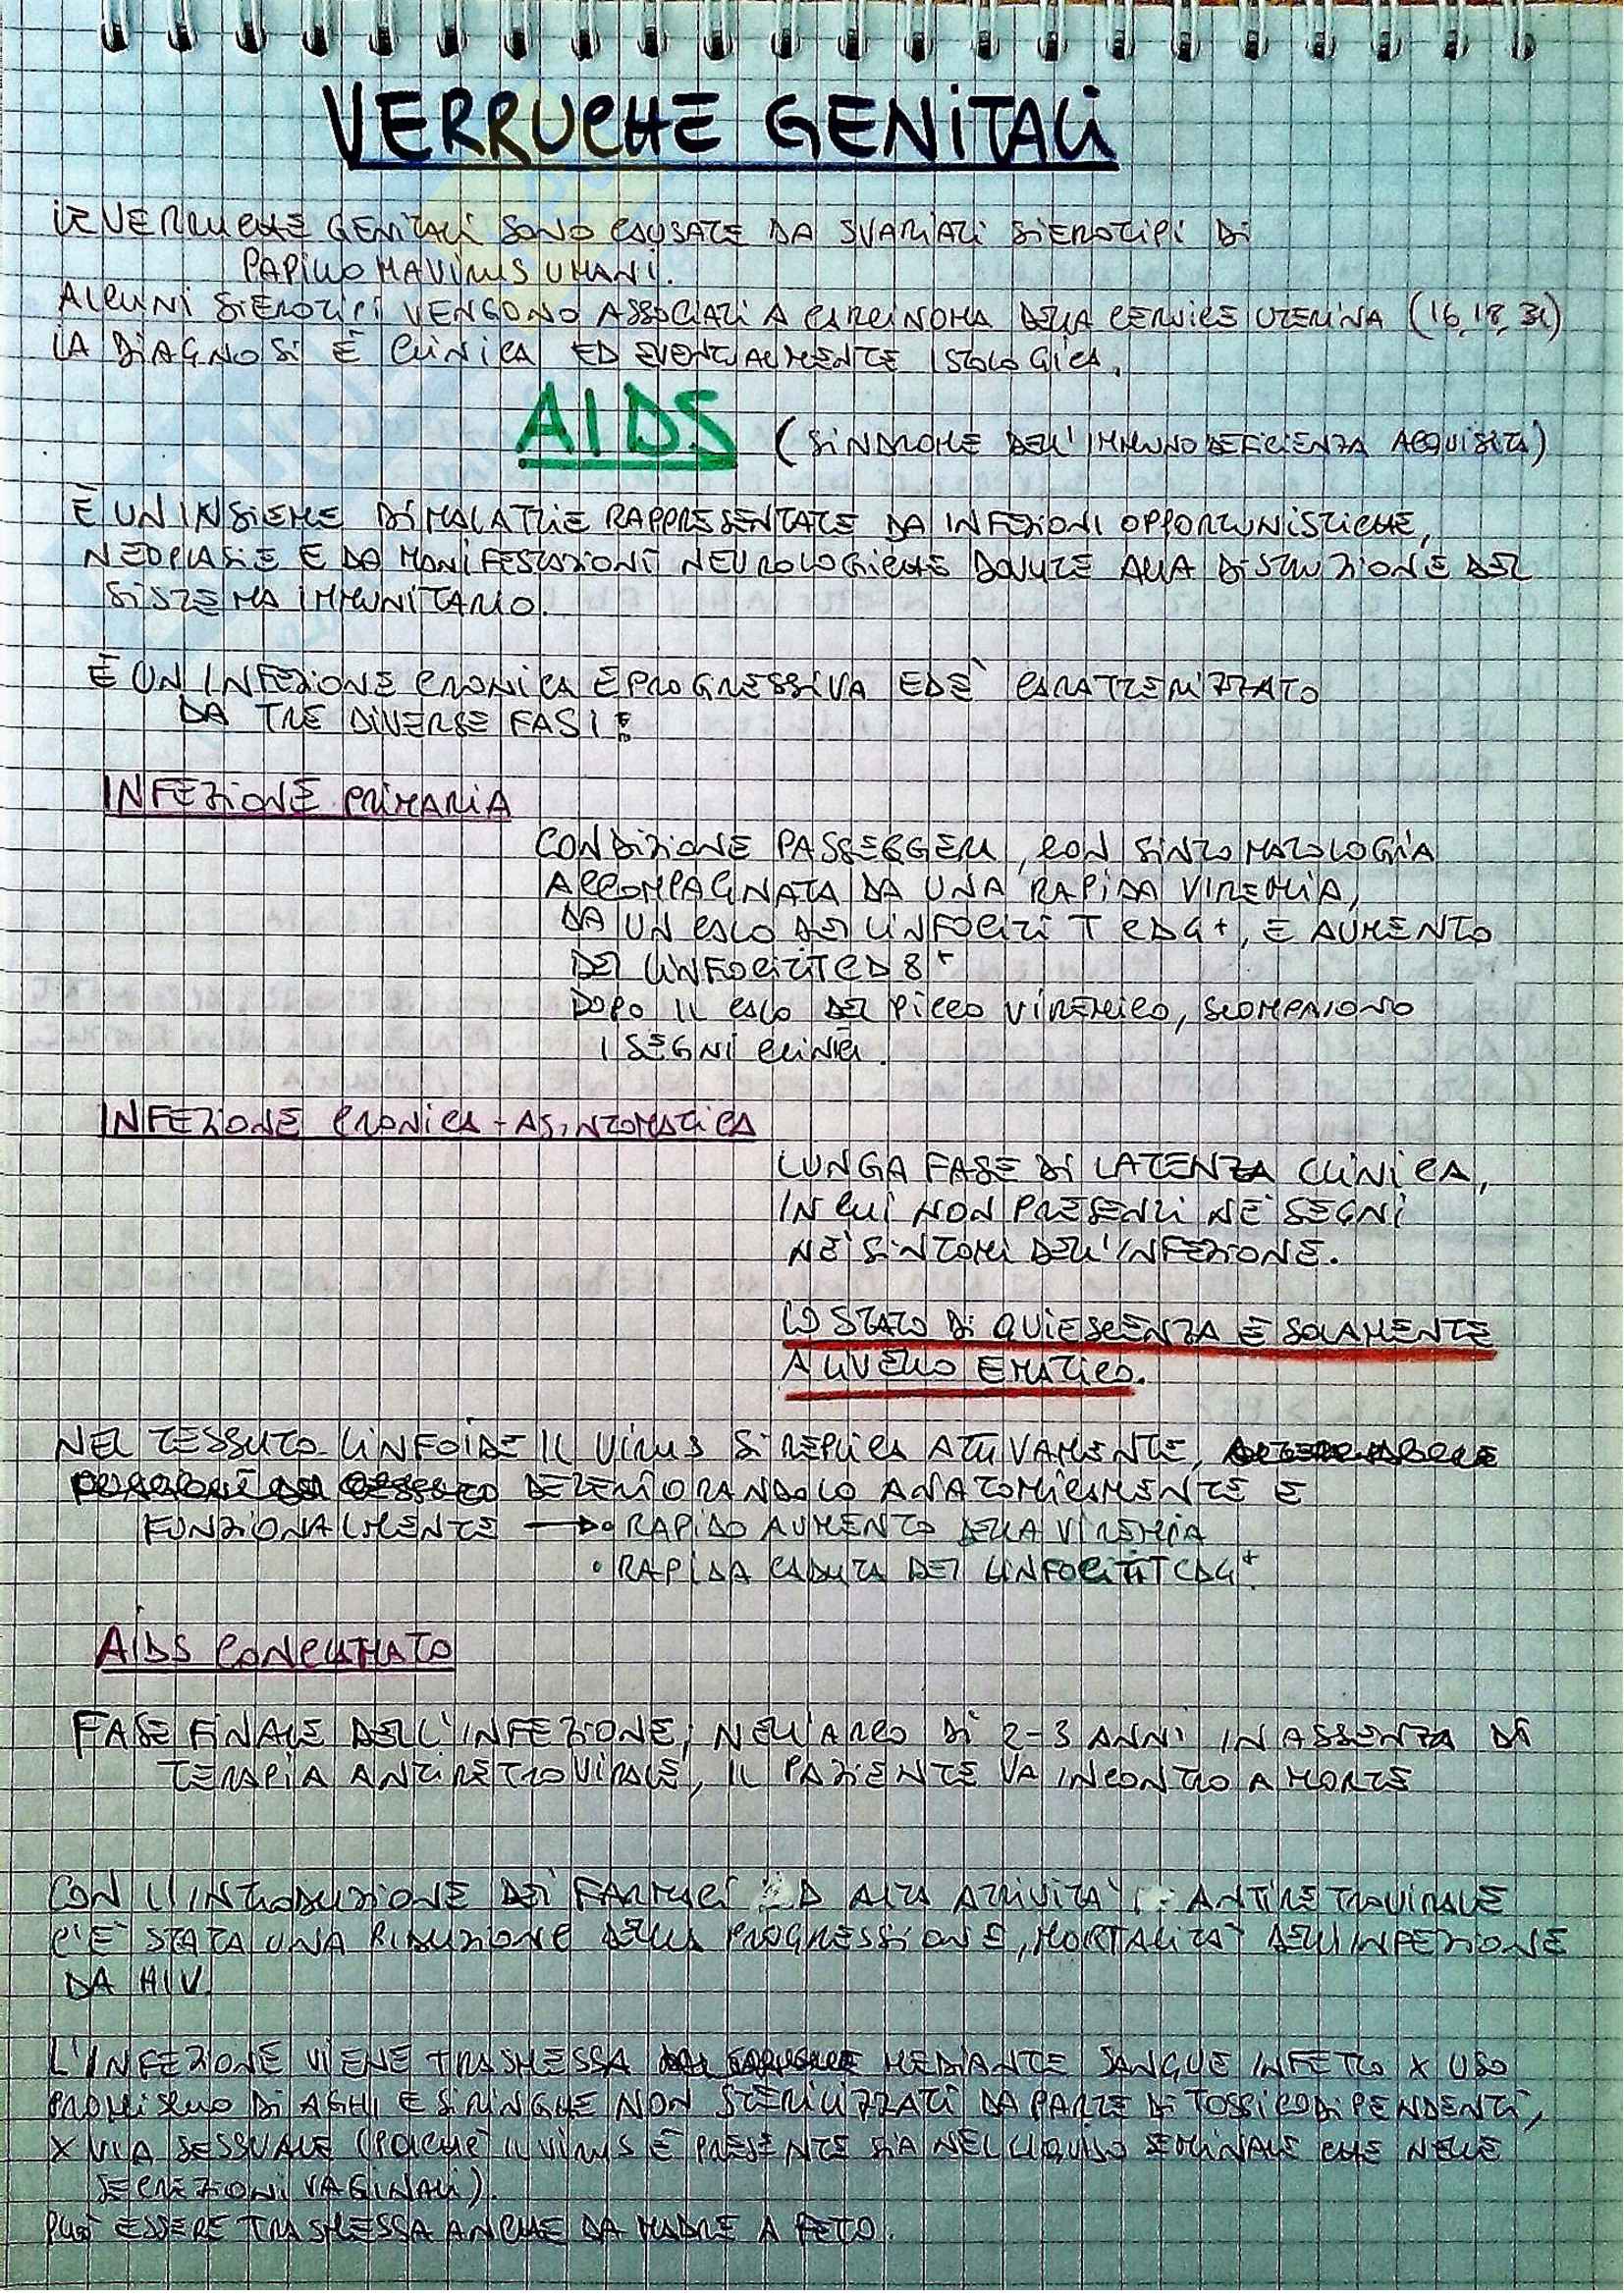 VERRUCHE GENITALI
LE VERRUCHE GENITALI SONO CAUSATE DA SVARIATI SIEROTIPI DI
PAPILLOMAVIRUS UMANI.
ALCUNI SIEROTIPI VENGONO ASSOCIATI A CARCINOMA DELLA CERVICE UTERINA (16, 18, 31)
LA DIAGNOSI È CLINICA ED EVENTUALMENTE ISTOLOGICA.
AIDS (SINDROME DELL'IMMUNODEFICIENZA ACQUISITA)
È UN INSIEME DI MALATTIE RAPPRESENTATE DA INFEZIONI OPPORTUNISTICHE,
NEOPLASIE E DA MANIFESTAZIONI NEUROLOGICHE DOVUTE ALLA DISTRUZIONE DEL
SISTEMA IMMUNITARIO.
È UN INFEZIONE CRONICA E PROGRESSIVA ED È CARATTERIZZATO
DA TRE DIVERSE FASI:
INFEZIONE PRIMARIA
CONDIZIONE PASSEGGERA, CON SINTOMATOLOGIA
ACCOMPAGNATA DA UNA RAPIDA VIREMIA,
DA UN CALO DEI LINFOCITI T CD4+, E AUMENTO
DEI LINFOCITI T CD8+
DOPO IL CALO DEL PICCO VIREMICO, SCOMPAIONO
I SEGNI CLINICI.
INFEZIONE CRONICA - ASINTOMATICA
LUNGA FASE DI LATENZA CLINICA,
IN CUI NON PRESENTI NÈ SEGNI
NÈ SINTOMI DELL'INFEZIONE.
LO STATO DI QUIESCENZA È SOLAMENTE
A LIVELLO EMATICO.
NEL TESSUTO LINFOIDE IL VIRUS SI REPLICA ATTIVAMENTE,
DETERIORANDOLO ANATOMICAMENTE E
FUNZIONALMENTE → • RAPIDO AUMENTO DELLA VIREMIA
• RAPIDA CADUTA DEI LINFOCITI T CD4+.
AIDS CONCLAMATO
FASE FINALE DELL'INFEZIONE, NELL'ARCO DI 2-3 ANNI IN ASSENZA DI
TERAPIA ANTIRETROVIRALE, IL PAZIENTE VA INCONTRO A MORTE
CON L'INTRODUZIONE DEI FARMACI AD ALTA ATTIVITÀ ANTIRETROVIRALE
C'È STATA UNA RIDUZIONE DELLA PROGRESSIONE, MORTALITÀ DELL'INFEZIONE
DA HIV.
L'INFEZIONE VIENE TRASMESSA MEDIANTE SANGUE INFETTO X USO
PROMISCUO DI AGHI E SIRINGHE NON STERILIZZATI DA PARTE DI TOSSICODIPENDENTI,
X VIA SESSUALE (POICHÈ IL VIRUS È PRESENTE SIA NEL LIQUIDO SEMINALE CHE NELLE
SECREZIONI VAGINALI).
PUÒ ESSERE TRASMESSA ANCHE DA MADRE A FETO.